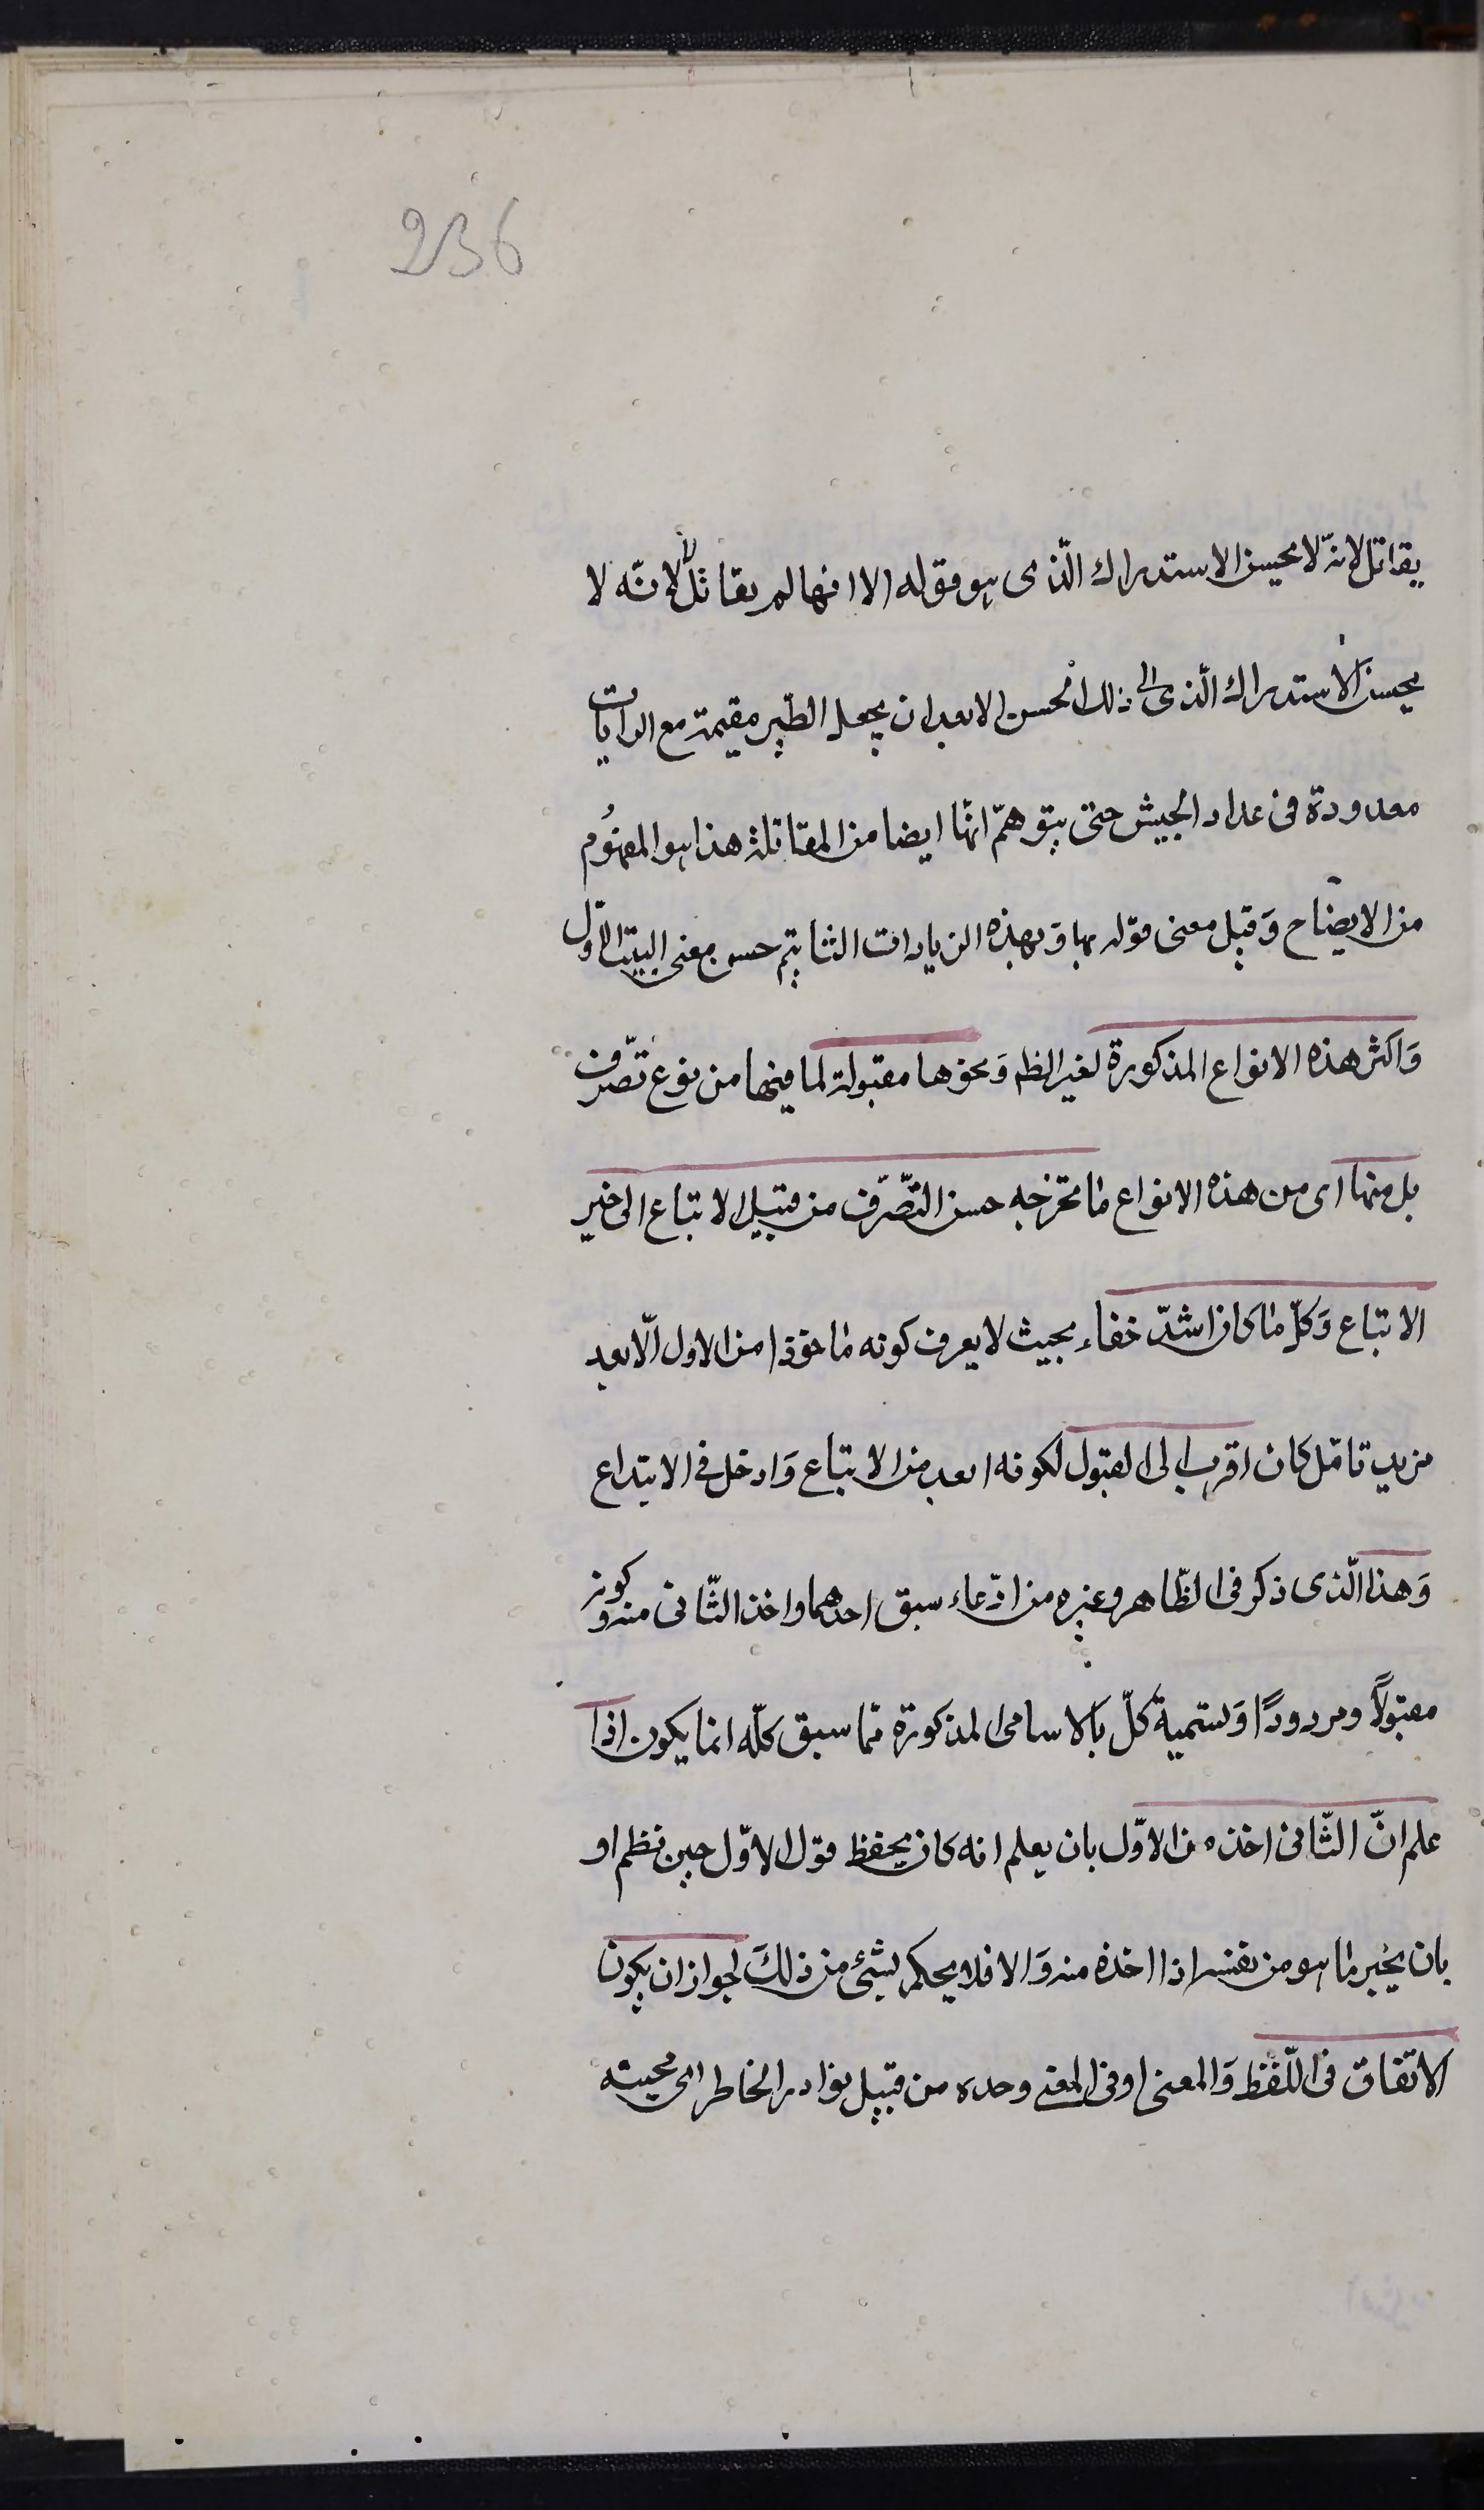 236
يقاتل لانّه لا يحسن الاستدراك الّذى هو قوله الا انها لم يقاتل لانّه لا
يحسن الاستدراك الّذى الى ذلك الحسن الا بعد ان يجعل الطير مقيمة مع الرايات
معدودة فى عداد الجيش حتى يتوهمّ انّها ايضا من المقاتلة هذا هو المفهوم
من الايضاح وَقيل معنى قوله بها وَبهذه الزيادات الثا يتم حسن معنى البيت الاوّل
وَاكثر هذه الانواع المذكورة لغير الظم وَنحوها مقبولة لما فيها من نوع تصّرف
بل منها اى من هذه الانواع ما تخرجه حسن التصّرّف من قبيل الاتباع الى خير
الاتباع وَكلّ ما كان اشدّ خفاء بحيث لا يعرف كونه ماخوذا من الاول الّا بعد
مزيد تامّل كان اقرب الى القبول لكونه ابعد من الاتباع وَادخل فى الابتداع
وَهذا الّذى ذكر فى الظّاهر وغيره من ادّعاء سبق احدهما واخذ الثّانى منه وكونه
مقبولاً ومردودًا وَتسمية كلّ بالاسامى المذكورة ممّا سبق كلّه انما يكون اذا
علم انّ الثّانى اخذ من الاوّل بان يعلم انه كان يحفظ قول الاوّل حين نظم او
بان يخبر ما هو من نفسه اذا اخذه منه وَالا فلا يحكم بشئ من ذلكَ لجواز ان يكون
الاتفاق فى اللّفظ وَالمعنى او فى المعنى وحده من قبيل نوادر الخاطر اى مجيئه